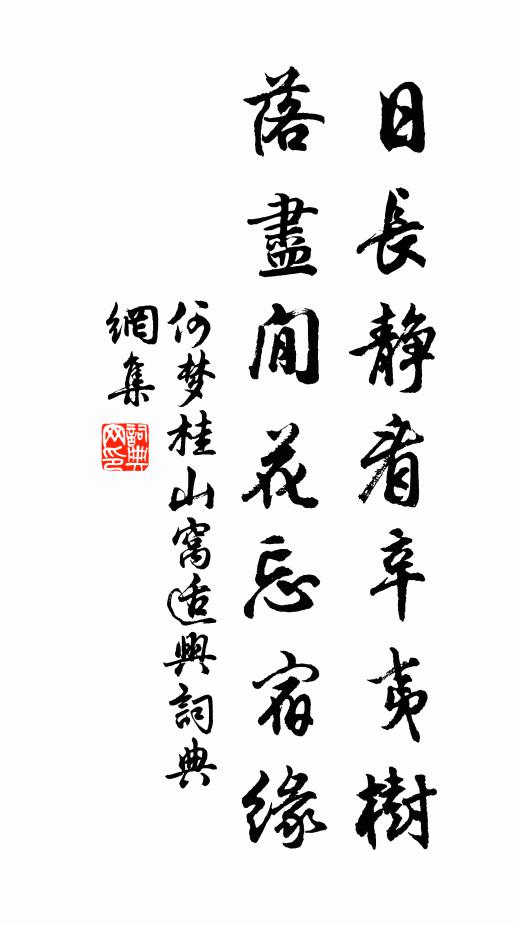 日長靜看辛夷樹
落盡閒花忘宿緣
何梦桂山窩适興詞典
網集
詞典
网印